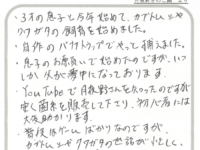 ・3才の息子と今年始めて、カブトムシや
クワガタの飼育を始めました。
・自作のバナナトラップでやっと捕えました。
・息子のお願いで始めたのですが、いつ
しか父が夢中になっております。
・YouTubeで月夜野さんを知ったのですが
安く菌糸を販売して下さり、初心者には
大変助かります。
・普段はゲームばかりなのですが、
カブトムシやクワガタの世話が忙しく、